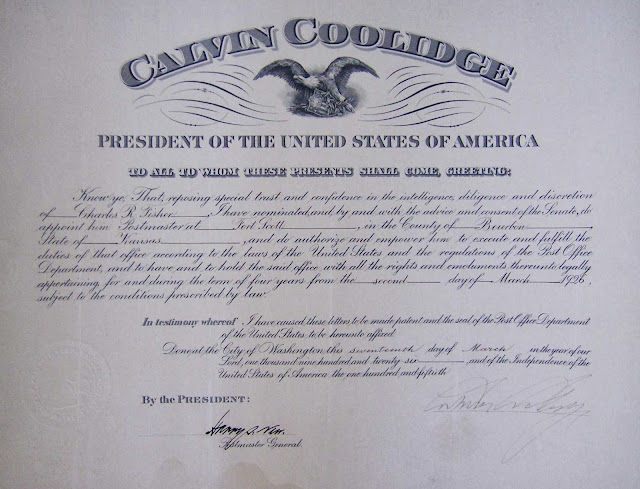 CALVIN COOLIDGE
PRESIDENT OF THE UNITED STATES OF AMERICA
TO ALL TO WHOM THESE PRESENTS SHALL COME, GREETING:
Know ye, That, reposing special trust and confidence in the intelligence, diligence and discretion
of Charles R. Fisher, I have nominated, and, by and with the advice and consent of the Senate, do
appoint him Postmaster at Fort Scott, in the County of Bourbon
State of Kansas, and do authorize and empower him to execute and fulfill the
duties of that office according to the laws of the United States and the regulations of the Post Office
Department, and to have and to hold the said office with all the rights and emoluments thereunto legally
appertaining, for and during the term of four years from the second day of March 1926,
subject to the conditions prescribed by law.
In testimony whereof I have caused these letters to be made patent and the seal of the Post Office Department
of the United States to be hereunto affixed.
Done at the City of Washington this seventeenth day of March in the year of our
Lord, one thousand nine hundred and twenty six, and of the Independence of the
United States of America the one hundred and fiftieth
By the PRESIDENT:
Harry S. New
Postmaster General.